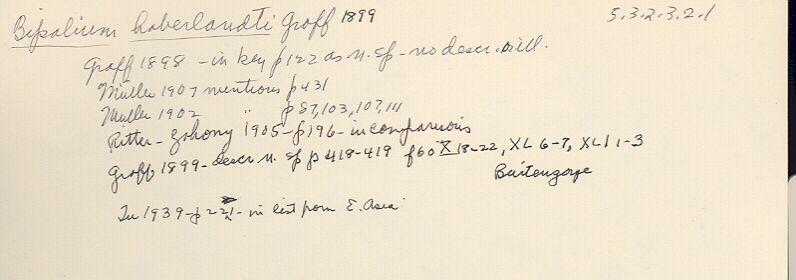 Bipalium haberlandti Graff 1899 5.3.2.3.2.1
Graff 1898 - in key p 122 as n. sp - no descr. or ill.
Müller 1907 mentions p 431
Müller 1902 " p 87, 103, 107, 111
Ritter-Zahony 1905 - p 96 - in comparisons
Graff, 1899 - descr n. sp p 418-419 f 60 X 18-22, XL 6-7, XLI 1-3
Buitenzorge
Tu 1939 - p 221 - in list from E. Asia